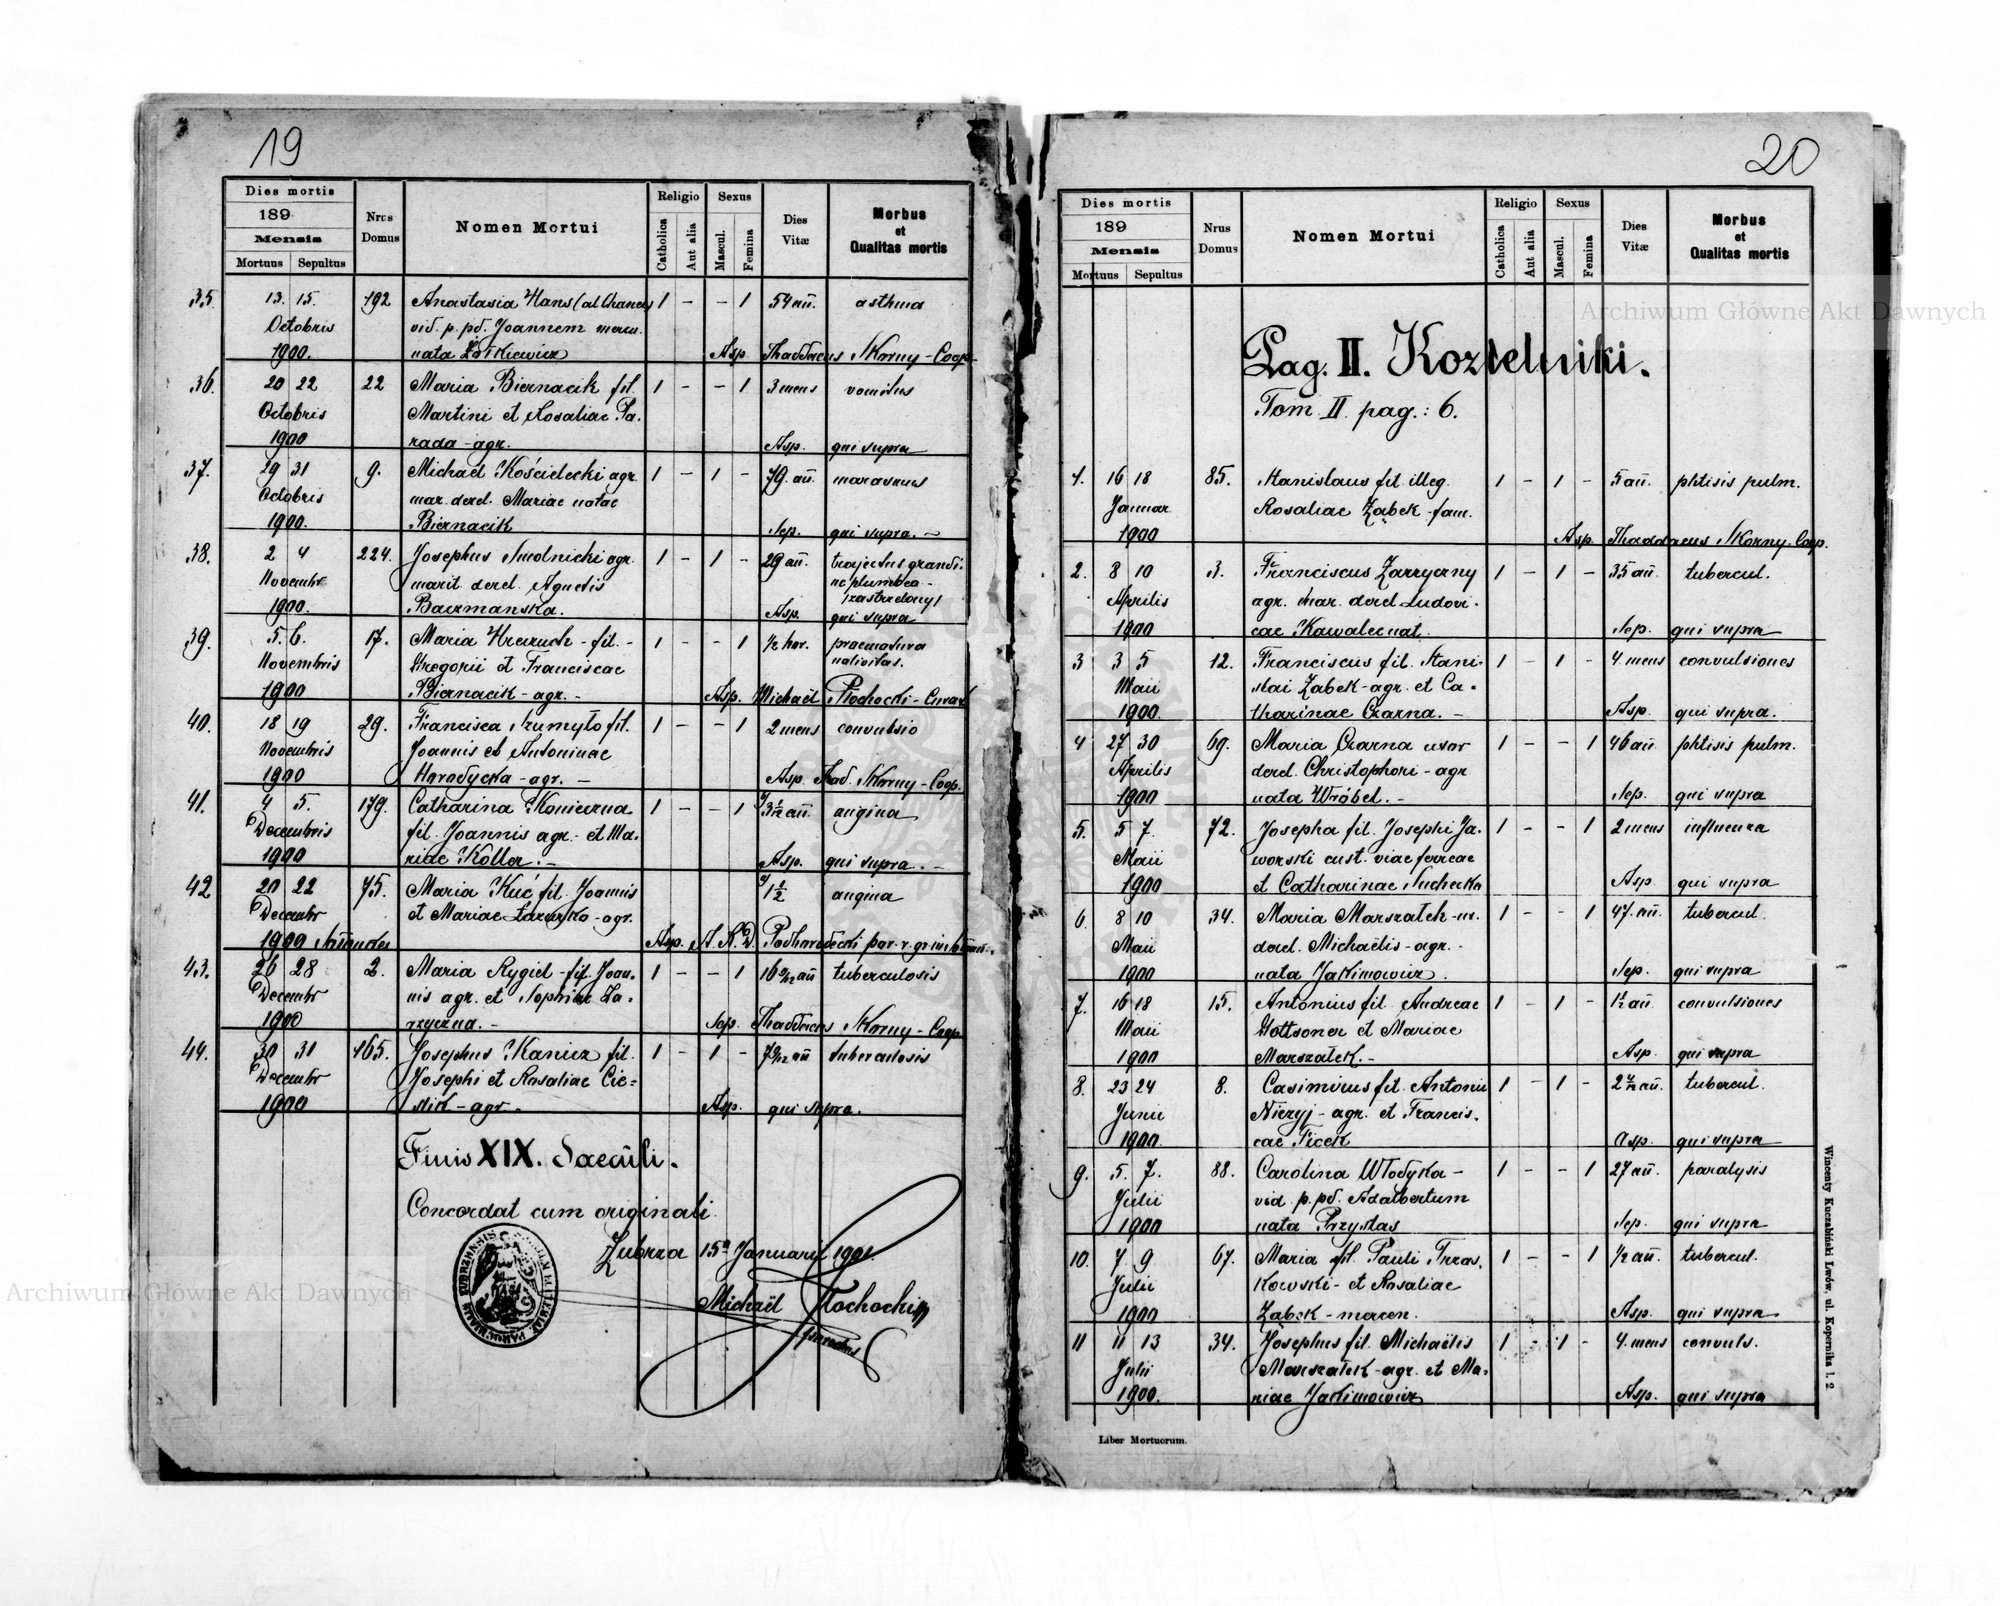 19
Dies mortis
189
Mensis
Mortuus Sepultus
Nrus Domus
Nomen Mortui
Religio
Catholica Aut alia
Sexus
Mascul. Femina
Dies Vitæ
Morbus et Qualitas mortis
35. 13. 15. 192 Anastasia Hans (al Chanas) 1 - - 1 54 añ. asthma
Octobris vid. p. pd. Joannem mercn.
1900. nata Żółkiewicz Asp. Thaddaeus Skorny - Coop.
36. 20 22 22 Maria Biernacik fil 1 - - 1 3 mens vomitus
Octobris Martini et Rosaliae Pa-
1900 rada - agr. Asp. qui supra
37. 29 31 9. Michaël Kościelecki agr. 1 - 1 - 79. añ. marasmus
Octobris mar. derel. Mariae natae
1900. Biernacik Sep. qui supra. -
38. 2 4 224. Josephus Smolnicki agr. 1 - 1 - 29 añ. trajectus grandi-
Novembr marit derel. Agnetis ne plumbea -
/zastrzelony/
1900. Baczmańska. Asp. qui supra
39. 5. 6. 17. Maria Hrezuch - fil. - 1 - - 1 1/2 hor. praematura
Novembris Gregorii et Franciscae nativitas.
1900 Biernacik - agr. - Asp. Michaël Płochocki - Curat
40. 18 19 29. Francisca Szumyło fil. 1 - - 1 2 mens convulsio
Novembris Joannis et Antoninae
1900 Horodycka - agr. - Asp. Thad. Skorny - Coop.
41. 4 5. 179. Catharina Konieczna 1 - - 1 3 1/2 añ angina
Decembris fil. Joannis agr. - et Ma-
1900 riae Koller. - Asp. qui supra. -
42 20 22 75. Maria Kuć fil. Joannis 1 1/2 angina
Decembr et Mariae Łazurko - agr.
1900 Asp. A. R. D. Podhorodecki par. r. gr.
43. 26 28 2. Maria Rygiel - fil. Joan- 1 - - 1 16 9/12 añ tuberculosis
Decembr nis agr. et Sophiae Za-
1900 rzyczna. - Sep. Thaddaeus Skorny - Coop
44. 30 31 165. Josephus Kanicz fil. 1 - 1 - 7 9/12 añ tuberculosis
Decembr Josephi et Rosaliae Cie=
1900 slik - agr. Asp. qui supra.
Finis XIX. Saeculi.
Concordat cum originali.
Zubrza 15ª Januarii 1901.
Michaël Płochocki
20
Dies mortis
189
Mensis
Mortuus Sepultus
Nrus Domus
Nomen Mortui
Religio
Catholica Aut alia
Sexus
Mascul. Femina
Dies Vitæ
Morbus et Qualitas mortis
Pag. II. Kozielniki.
Tom II pag.: 6.
1. 16 18 85. Stanislaus fil illeg. 1 - 1 - 5 añ. phtisis pulm.
Januar Rosaliae Ząbek - fam.
1900 Asp. Thaddaeus Skorny Coop.
2. 8 10 3. Franciscus Zarzyczny 1 - 1 - 35 añ. tubercul.
Aprilis agr. mar. derel Ludovi-
1900 cae Kawalec nat. Sep. qui supra
3 3 5 12. Franciscus fil. Stani- 1 - 1 - 4. mens convulsiones
Maii slai Ząbek - agr. et Ca-
1900. tharinae Czarna. - Asp. qui supra.
4 27 30 69. Maria Czarna uxor 1 - - 1 46 añ. phtisis pulm.
Aprilis derel. Christophori - agr
1900 nata Wróbel. - Sep. qui supra
5. 5 7. 72. Josepha fil. Josephi Ja- 1 - - 1 2 mens influenza
Maii worski cust. viae ferreae
1900 et Catharinae Suchecka Asp. qui supra
6. 8 10 34. Maria Marszałek - u. 1 - - 1 47. añ. tubercul.
Maii derel. Michaëlis - agr. -
1900 nata Jakimowicz. Sep. qui supra
7. 16 18 15. Antonius fil. Andreae 1 - 1 - 1 1/2 añ. convulsiones
Maii Gottsoner et Mariae
1900 Marszałek. - Asp. qui supra
8. 23 24 8. Casimirus fil. Antonii 1 - 1 - 2 7/12 añ. tubercul.
Junii Niczyj - agr. et Francis-
1900. cae Ficek asp. qui supra
9. 5. 7. 88. Carolina Włodyka - 1 - - 1 27 añ. paralysis
Julii vid. p. pd. Adalbertum
1900 nata Przystaś Sep. qui supra
10. 7 9 67. Maria fil. Pauli Trzas- 1 - - 1 1/2 añ. tubercul.
Julii kowski - et Rosaliae
1900 Ząbek - mercen. Asp. qui supra
11 11 13 34. Josephus fil. Michaëlis 1 - 1 - 4. mens convuls.
Julii Marszałek - agr. et Ma-
1900. riae Jakimowicz Asp. qui supra
Liber Mortuorum.
Wincenty Kuczabiński Lwów, ul. Kopernika l. 2
Archiwum Główne Akt Dawnych
Archiwum Główne Akt Dawnych